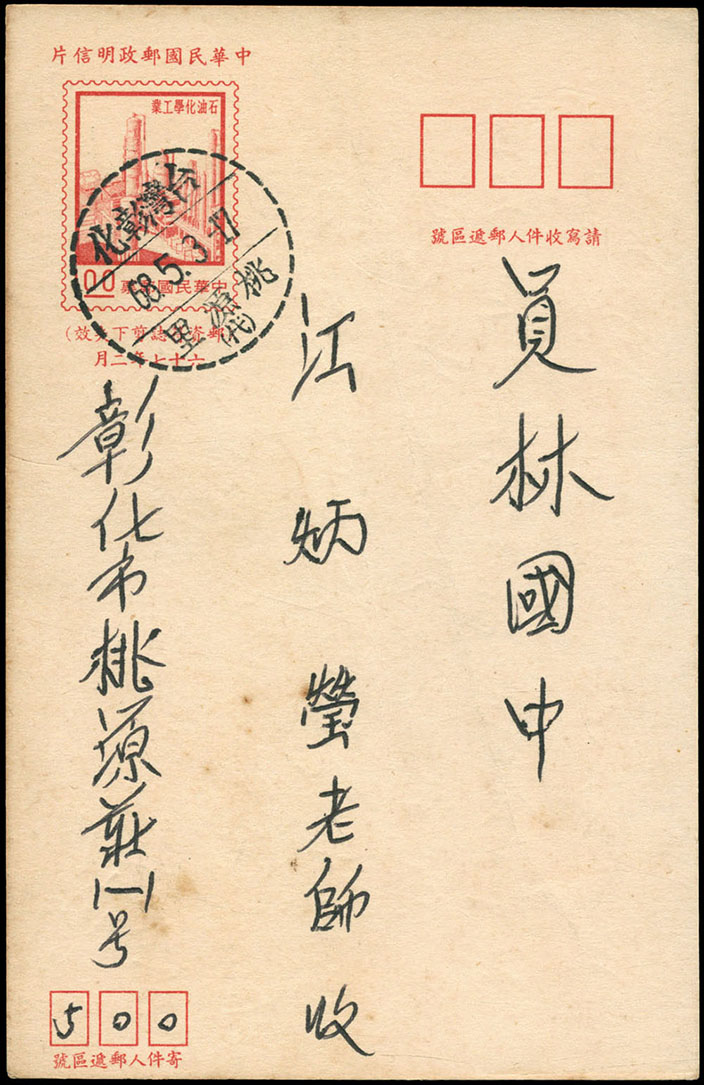 中華民國郵政明信片
石油化學工業
中華民國郵票
台灣彰化
68.5.3.17
桃源里
(代)
六十七年二月
請寫收件人郵遞區號
員林國中
江炳瑩老師收
彰化市桃源莊1-1号
500
寄件人郵遞區號